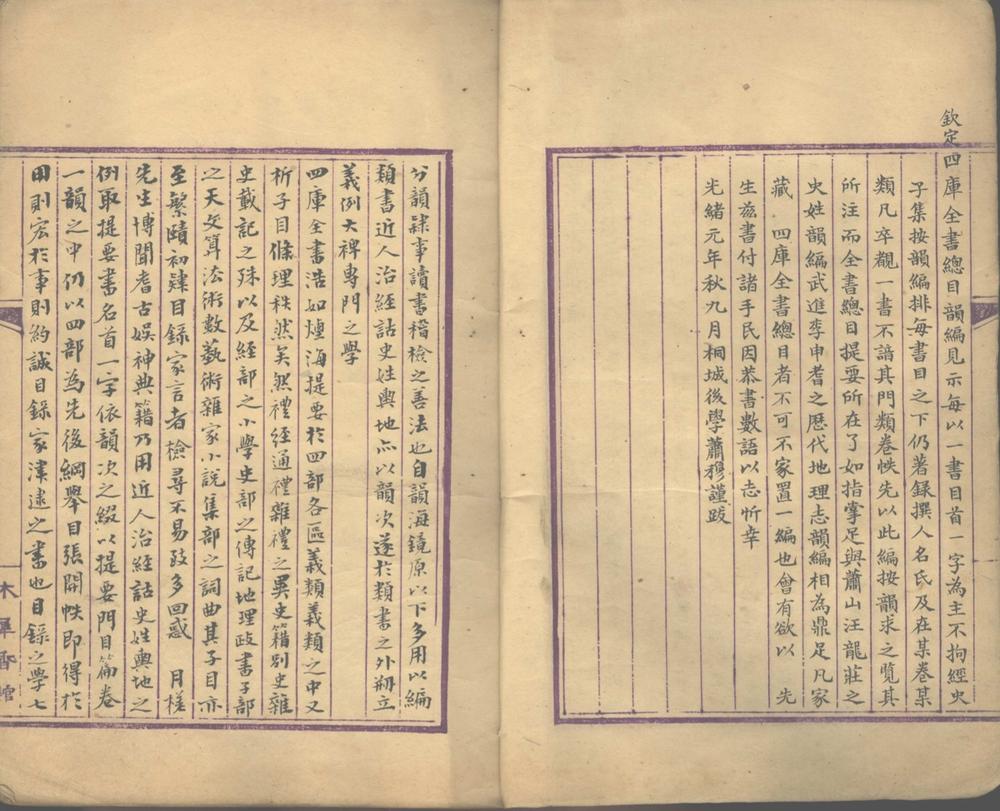 欽定四庫全書總目韻編見示每以一書目首一字為主不拘經史
子集按韻編排每書目之下仍著錄撰人名氏及在某卷某
類凡卒覯一書不諳其門類卷帙先以此編按韻求之覽其
所注而全書總目提要所在了如指掌足與蕭山汪龍莊之
史姓韻編武進李申耆之歷代地理志韻編相為鼎足凡家
藏 四庫全書總目者不可不家置一編也會有欲以 先
生茲書付諸手民因恭書數語以志忻幸
光緒元年秋九月桐城後學蕭穆謹跋
分韻隸事讀書稽檢之善法也自韻海鏡原以下多用以編
類書近人治經詁史姓輿地亦以韻次遂於類書之外剏立
義例大裨專門之學
四庫全書浩如煙海提要於四部各區義類義類之中又
析子目條理秩然矣然禮經通禮雜禮之異史籍別史雜
史載記之殊以及經部之小學史部之傳記地理政書子部
之天文算法術數藝術雜家小說集部之詞曲其子目亦
至繁賾初肄目錄家言者檢尋不易致多回惑 月樵
先生博聞耆古娛神典籍乃用近人治經詁史姓輿地之
例取提要書名首一字依韻次之綴以提要門目篇卷
一韻之中仍以四部為先後綱舉目張開帙即得於
用則宏於事則約誠目錄家津逮之書也目錄之學七
木犀香館